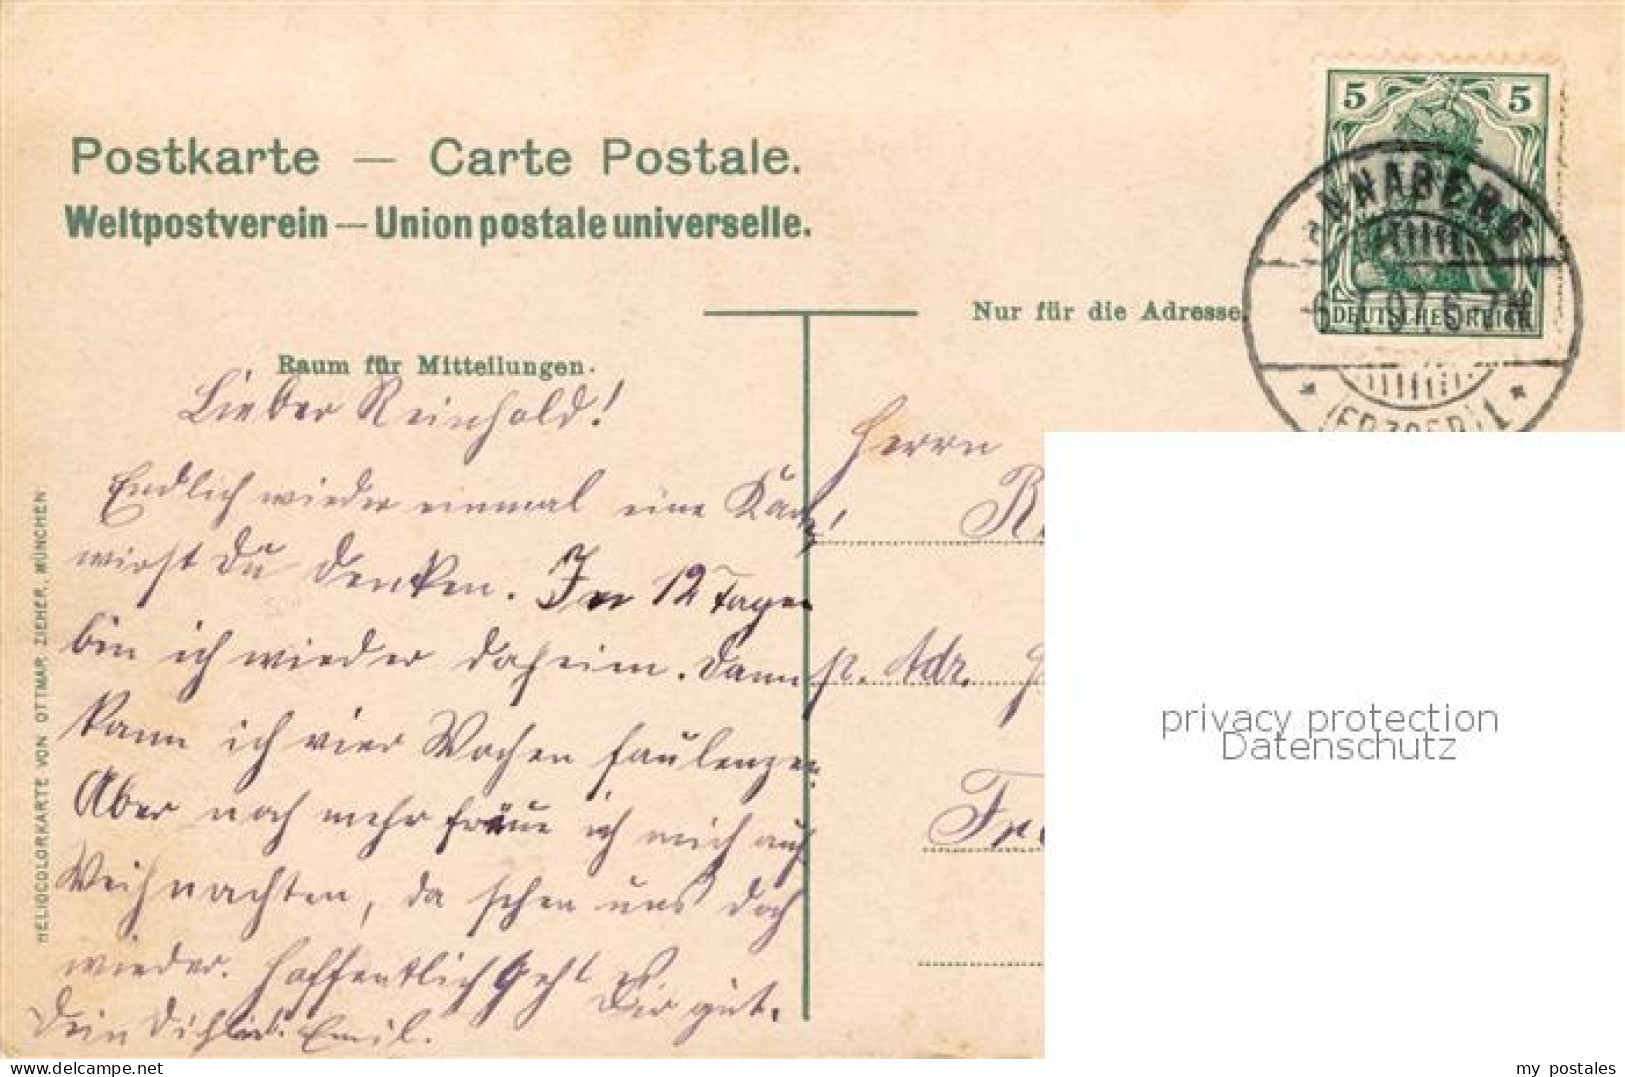 Postkarte — Carte Postale.
Weltpostverein — Union postale universelle.
Nur für die Adresse.
Raum für Mitteilungen.
5 5
DEUTSCHES REICH
ANNABERG
6.7.07. 6-7N
(ERZGEB) 1
Lieber Reinhold!
Endlich wieder einmal eine Karte!
wirst Du denken. In 12 Tagen
bin ich wieder daheim. Dann
kann ich vier Wochen faulenzen.
Aber noch mehr freue ich mich auf
Weihnachten, da sehen uns doch
wieder. Hoffentlich geht
Dir gut.
Dein Emil.
Herrn
p. Adr.
HELIOCOLORKARTE VON OTTMAR ZIEHER, MÜNCHEN.
privacy protection
Datenschutz
my postales